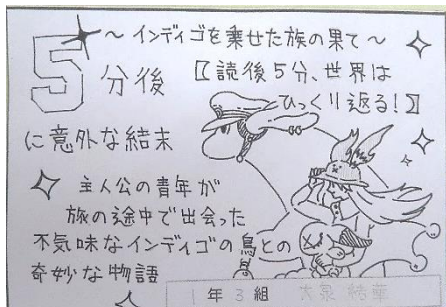 ～インディゴを乗せた族の果て～
5分後
【読後5分、世界は
ひっくり返る!】
に意外な結末
主人公の青年が
旅の途中で出会った
不気味なインディゴの鳥との
奇妙な物語
1年3組 大泉 結華